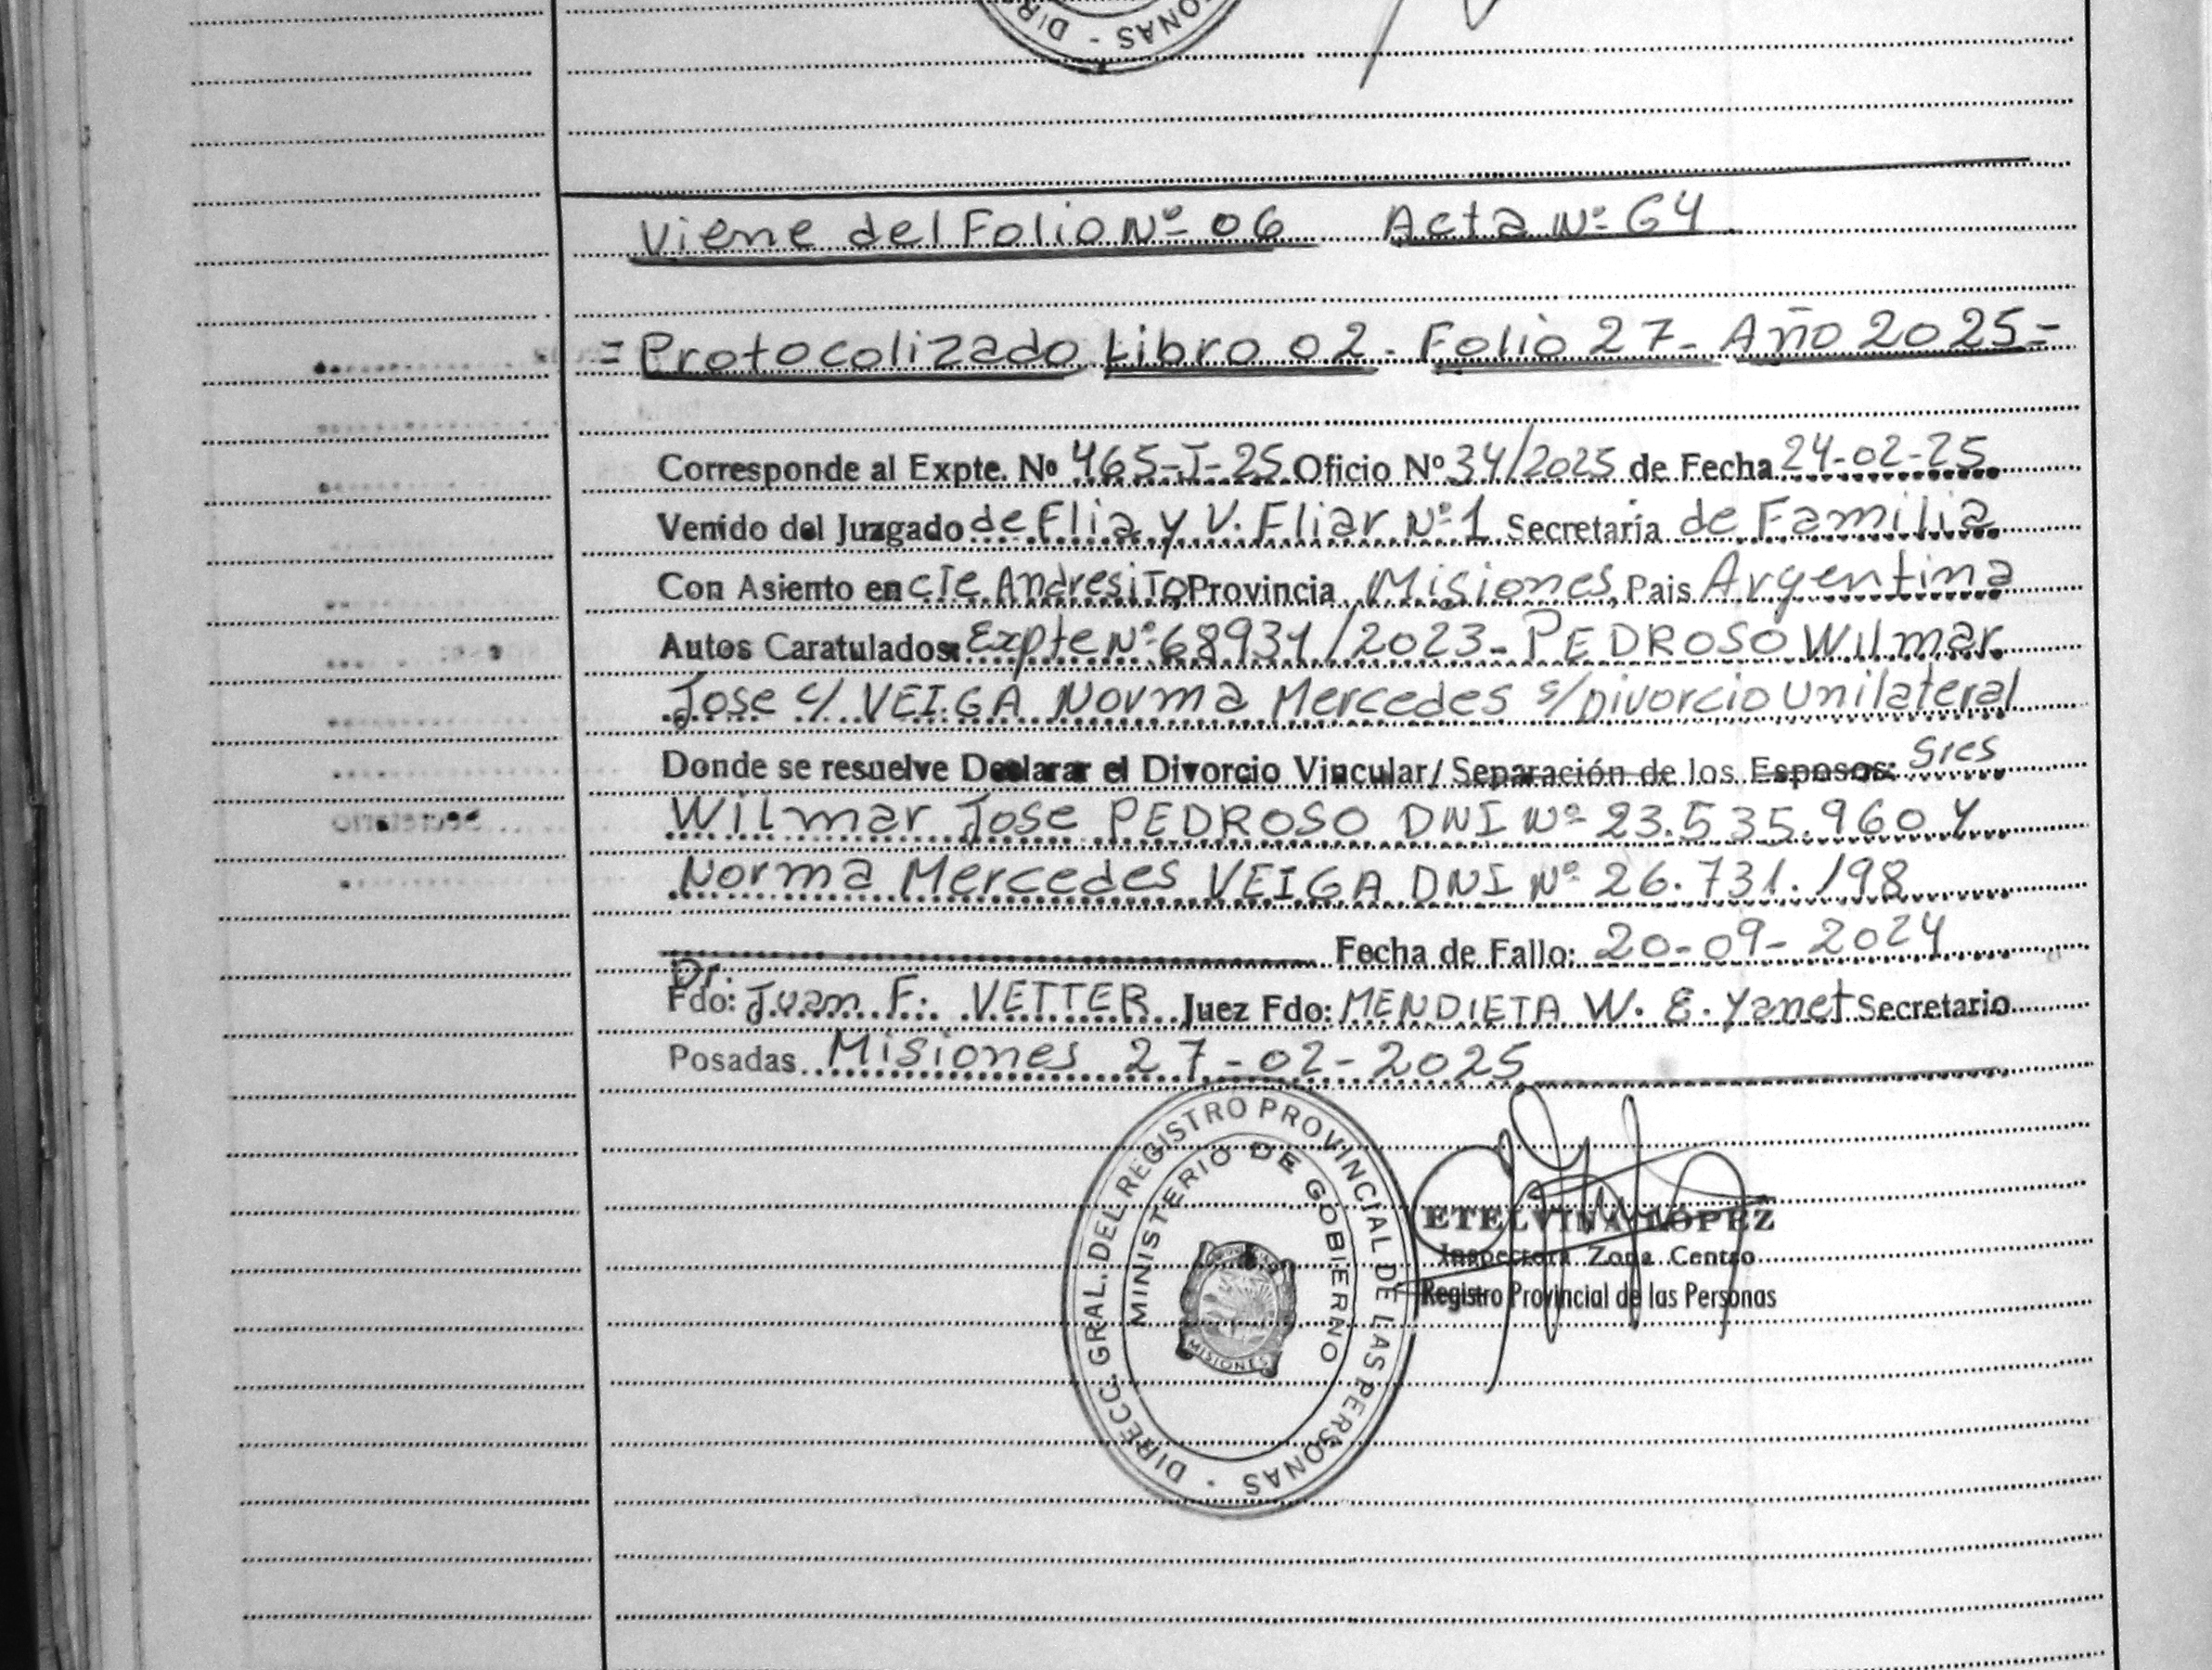 DIR   ONAS -
Viene del Folio Nº 06   Acta Nº 64
= Protocolizado Libro 02 - Folio 27 - Año 2025 =
Corresponde al Expte. Nº 465-J-25 Oficio Nº 34/2025 de Fecha 24-02-25
Venido del Juzgado de Flia y V. Fliar Nº 1 Secretaría de Familia
Con Asiento en cTe Andresito Provincia Misiones, Pais Argentina
Autos Caratulados: Expte Nº 68931/2023 - PEDROSO Wilmar
Jose c/ VEIGA Norma Mercedes s/ Divorcio Unilateral
Donde se resuelve Declarar el Divorcio Vincular/ Separación de los Esposos: Sres
Wilmar Jose PEDROSO DNI Nº 23.535.960 Y
Norma Mercedes VEIGA DNI Nº 26.731.198
Fecha de Fallo: 20-09-2024
Dr.
Fdo: Juan F. VETTER Juez Fdo: MENDIETA W. E. Yanet Secretario
Posadas Misiones 27-02-2025
DIRECC. GRAL. DEL REGISTRO PROVINCIAL DE LAS PERSONAS -
MINISTERIO DE GOBIERNO
MISIONES
ETELVINA LOPEZ
Inspectora Zona Centro
Registro Provincial de las Personas